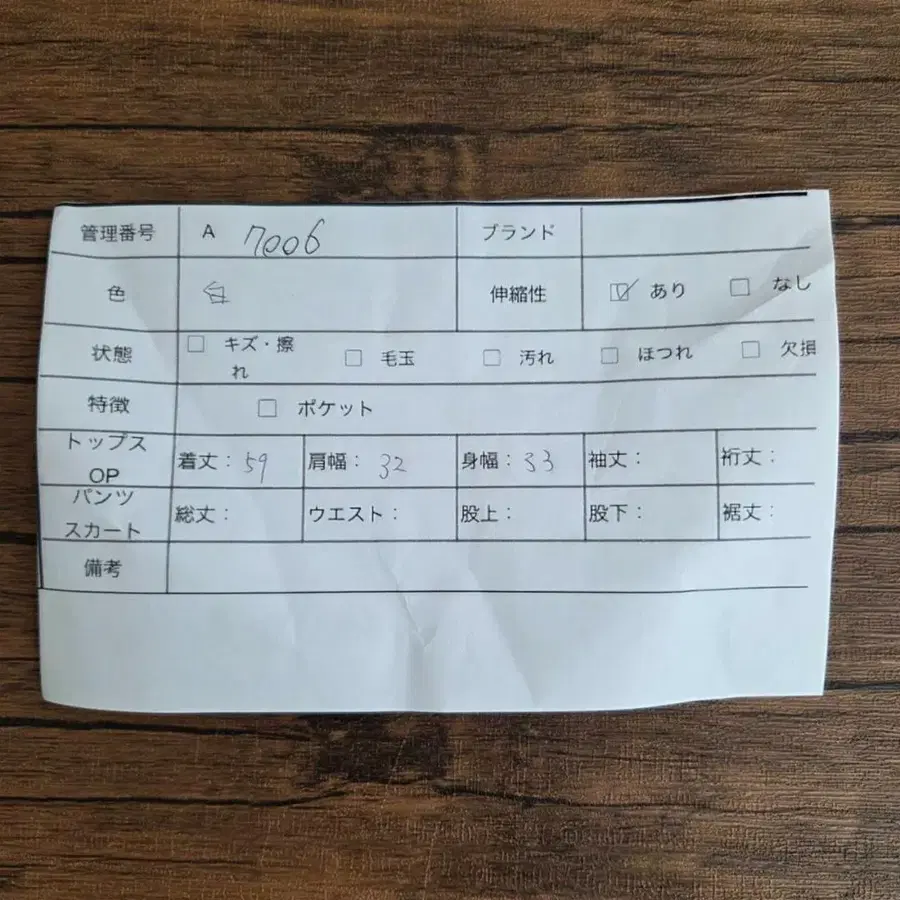 管理番号 A 7006 ブランド
色 白 伸縮性 ☑ あり ☐ なし
状態 ☐ キズ・擦れ ☐ 毛玉 ☐ 汚れ ☐ ほつれ ☐ 欠損
特徴 ☐ ポケット
トップス
OP 着丈：59 肩幅：32 身幅：33 袖丈： 裄丈：
パンツ
スカート 総丈： ウエスト： 股上： 股下： 裾丈：
備考